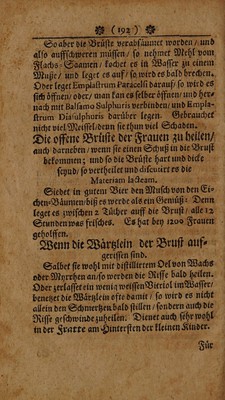 ( 192 )
So aber die Brüste verabsäumet worden / und
also aufschweren müssen / so nehmet Mehl vom
Flachs-Saamen / kochet es in Wasser zu einem
Muße / und leget es auf / so wird es bald brechen.
Oder leget Emplastrum Paracelsi darauf / so wird es
sich öffnen / oder / man kan es selber öffnen / und her-
nach mit Balsamo Sulphuris verbinden / und Empla-
strum Diasulphuris darüber legen. Gebrauchet
nicht viel Meissel / denn sie thun viel Schaden.
Die offene Brüste der Frauen zu heilen /
auch darneben / wenn sie einen Schuß in die Brust
bekommen; und so die Brüste hart und dicke
seynd / so vertheilet und discutirt es die
Materiam lacteam.
Siedet in gutem Bier den Musch von den Ei-
chen-Bäumen / biß es werde als ein Gemüß: Denn
leget es zwischen 2 Tücher auff die Brust / alle 12
Stunden was frisches. Es hat bey 1200 Frauen
geholffen.
Wenn die Wärtzlein der Brust auf-
gerissen sind.
Salbet sie wohl mit distillirtem Oel von Wachs
oder Myrrhen an / so werden die Risse bald heilen.
Oder zerlasset ein wenig weissen Vitriol im Wasser /
benetzet die Wärtzlein offte damit / so wird es nicht
allein den Schmertzen bald stillen / sondern auch die
Risse geschwinde zuheilen. Dienet auch sehr wohl
in der Fratte am Hintersten der kleinen Kinder.
Für